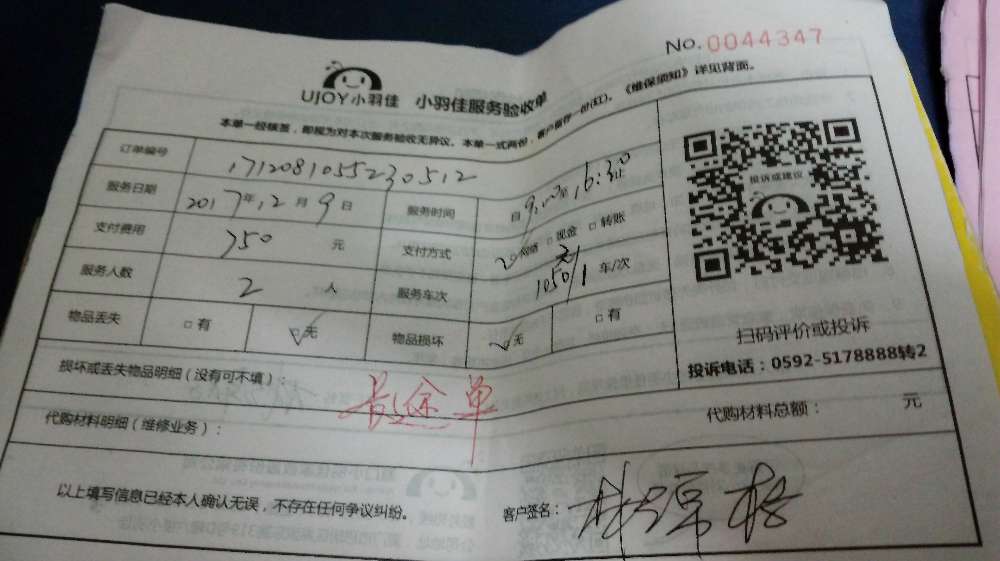 No. 0044347
UJOY小羽佳 小羽佳服务验收单
本单一经核签，即视为对本次服务验收无异议。本单一式两份，客户留存一份(红)。《维保须知》详见背面。
订单编号 171208105523 0512
服务日期 2017年12月9日 服务时间 自9:00至16:30止
支付费用 750元 支付方式 网络 □现金 □转账
服务人数 2人 服务车次 1050元/1车/次
物品丢失 □有 ☑无 物品损坏 ☑无 □有
投诉或建议
扫码评价或投诉
投诉电话：0592-5178888转2
损坏或丢失物品明细（没有可不填）：
长途单
代购材料明细（维修业务）： 代购材料总额： 元
以上填写信息已经本人确认无误，不存在任何争议纠纷。 客户签名：